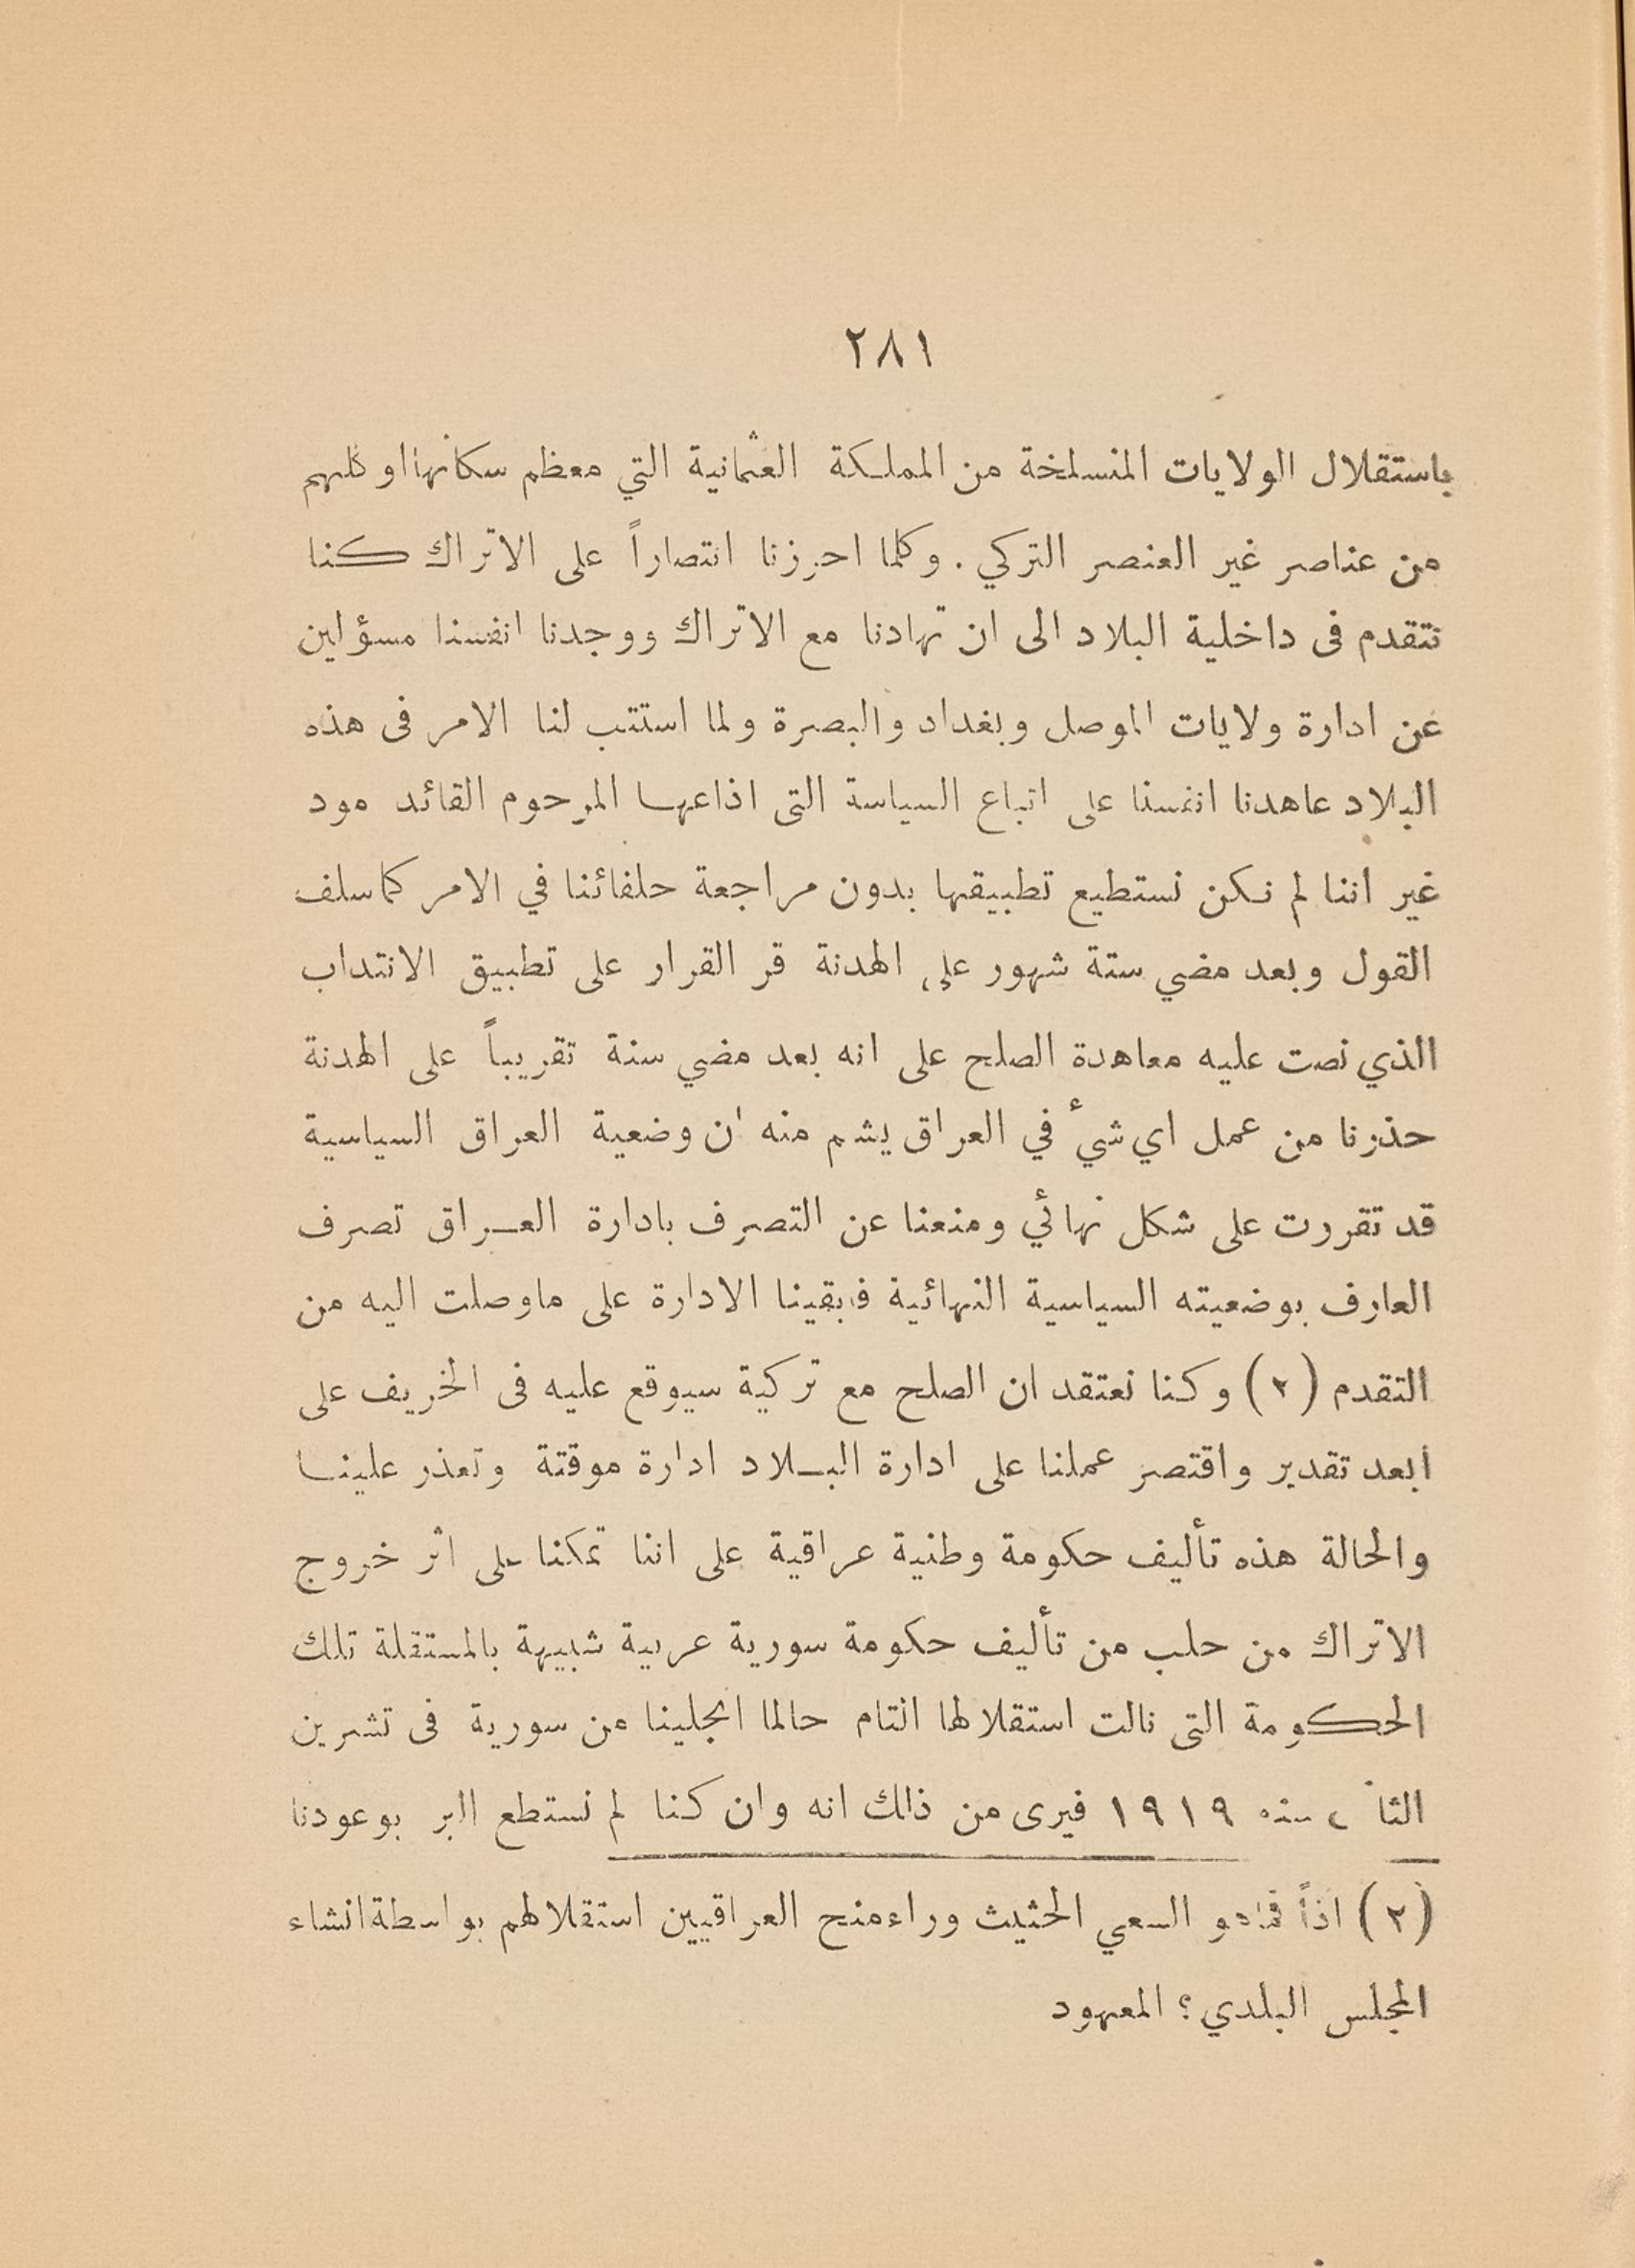 ٢٨١
باستقلال الولايات المنسلخة من المملكة العثمانية التي معظم سكانها او كلهم
من عناصر غير العنصر التركي . وكلما احرزنا انتصاراً على الاتراك كنا
نتقدم فى داخلية البلاد الى ان تهادنا مع الاتراك ووجدنا انفسنا مسؤلين
عن ادارة ولايات الموصل وبغداد والبصرة ولما استتب لنا الامر فى هذه
البلاد عاهدنا انفسنا على اتباع السياسة التى اذاعها المرحوم القائد مود
غير اننا لم نكن نستطيع تطبيقها بدون مراجعة حلفائنا في الامر كما سلف
القول وبعد مضي ستة شهور على الهدنة قر القرار على تطبيق الانتداب
الذي نصت عليه معاهدة الصلح على انه بعد مضي سنة تقريباً على الهدنة
حذرنا من عمل اي شيء في العراق يشم منه ان وضعية العراق السياسية
قد تقررت على شكل نهائي ومنعنا عن التصرف بادارة العراق تصرف
العارف بوضعيته السياسية النهائية فابقينا الادارة على ماوصلت اليه من
التقدم (٢) وكنا نعتقد ان الصلح مع تركية سيوقع عليه فى الخريف على
ابعد تقدير واقتصر عملنا على ادارة البلاد ادارة موقتة وتعذر علينا
والحالة هذه تأليف حكومة وطنية عراقية على اننا تمكنا على اثر خروج
الاتراك من حلب من تأليف حكومة سورية عربية شبيهة بالمستقلة تلك
الحكومة التى نالت استقلالها التام حالما انجلينا من سورية فى تشرين
سنة ١٩١٩ فيرى من ذلك انه وان كنا لم نستطع البر بوعودنا
(٢) اذاً السعي الحثيث وراء منح العراقيين استقلالهم بواسطة انشاء
المجلس البلدي؟ المعهود